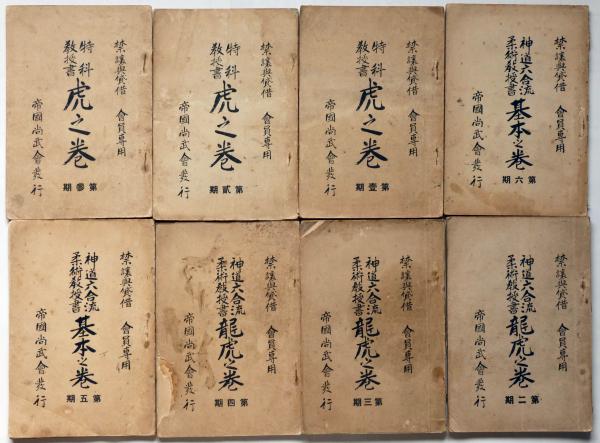 禁譲與貸借 會員専用
神道六合流
柔術教授書
基本之巻
第六期
帝國尚武會発行
禁譲與貸借 會員専用
特科
教授書
虎之巻
第壹期
帝國尚武會発行
禁譲與貸借 會員専用
特科
教授書
虎之巻
第貳期
帝國尚武會発行
禁譲與貸借 會員専用
特科
教授書
虎之巻
第参期
帝國尚武會発行
禁譲與貸借 會員専用
神道六合流
柔術教授書
龍虎之巻
第二期
帝國尚武會発行
禁譲與貸借 會員専用
神道六合流
柔術教授書
龍虎之巻
第三期
帝國尚武會発行
禁譲與貸借 會員専用
神道六合流
柔術教授書
龍虎之巻
第四期
帝國尚武會発行
禁譲與貸借 會員専用
神道六合流
柔術教授書
基本之巻
第五期
帝國尚武會発行